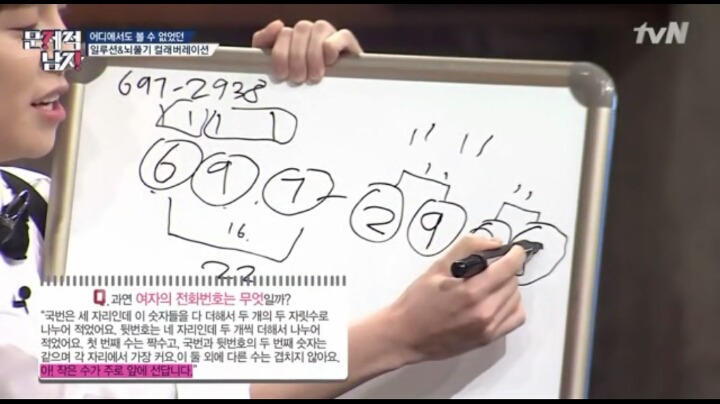 어디에서도 볼 수 없었던
일루션&뇌풀기 컬래버레이션
문제적
남자
tvN
697-2938
6 9 7 - 2 9
16
22
Q. 과연 여자의 전화번호는 무엇일까?
"국번은 세 자리인데 이 숫자들을 다 더해서 두 개의 두 자릿수로
나누어 적었어요. 뒷번호는 네 자리인데 두 개씩 더해서 나누어
적었어요. 첫 번째 수는 짝수고, 국번과 뒷번호의 두 번째 숫자는
같으며 각 자리에서 가장 커요.이 둘 외에 다른 수는 겹치지 않아요.
아! 작은 수가 주로 앞에 선답니다."